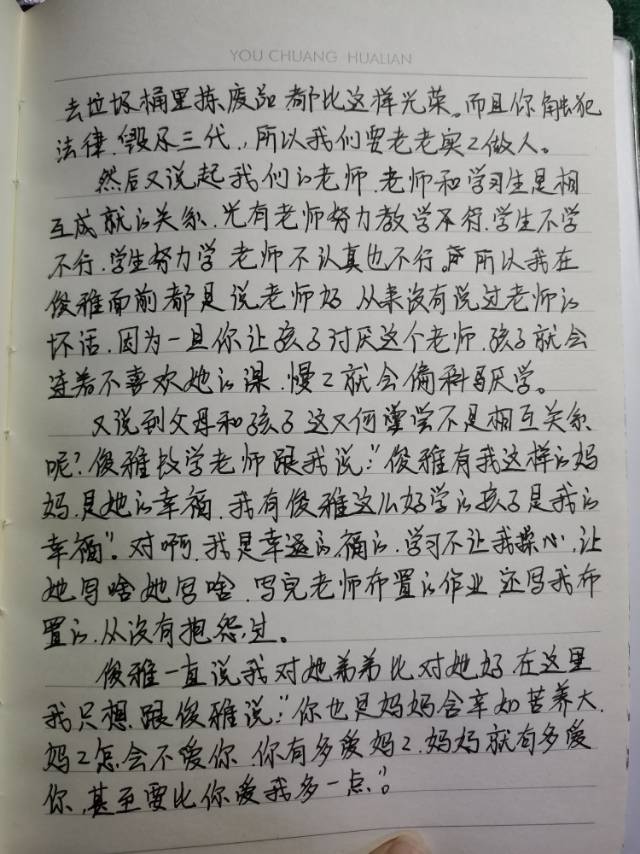 YOU CHUANG HUALIAN
去垃圾桶里拣废品都比这样光荣。而且你触犯
法律,毁尽三代,所以我们要老老实〻做人。
然后又说起我们的老师,老师和学习生是相
互成就的关系,光有老师努力教学不行,学生不学
不行,学生努力学 老师不认真也不行。所以我在
俊雅面前都是说老师好 从来没有说过老师的
坏话,因为一旦你让孩子讨厌这个老师,孩子就会
连着不喜欢她的课,慢〻就会偏科厌学。
又说到父母和孩子 这又何尝不是相互关系
呢?俊雅数学老师跟我说:“俊雅有我这样的妈
妈,是她的幸福,我有俊雅这么好学的孩子是我的
幸福”。对啊,我是幸运的福的,学习不让我操心,让
她写啥她写啥,写完老师布置的作业 还写我布
置的,从没有抱怨过。
俊雅一直说我对她弟弟比对她好 在这里
我只想跟俊雅说:“你也是妈妈含辛如苦养大,
妈〻怎会不爱你 你有多爱妈〻,妈妈就有多爱
你,甚至要比你爱我多一点”。